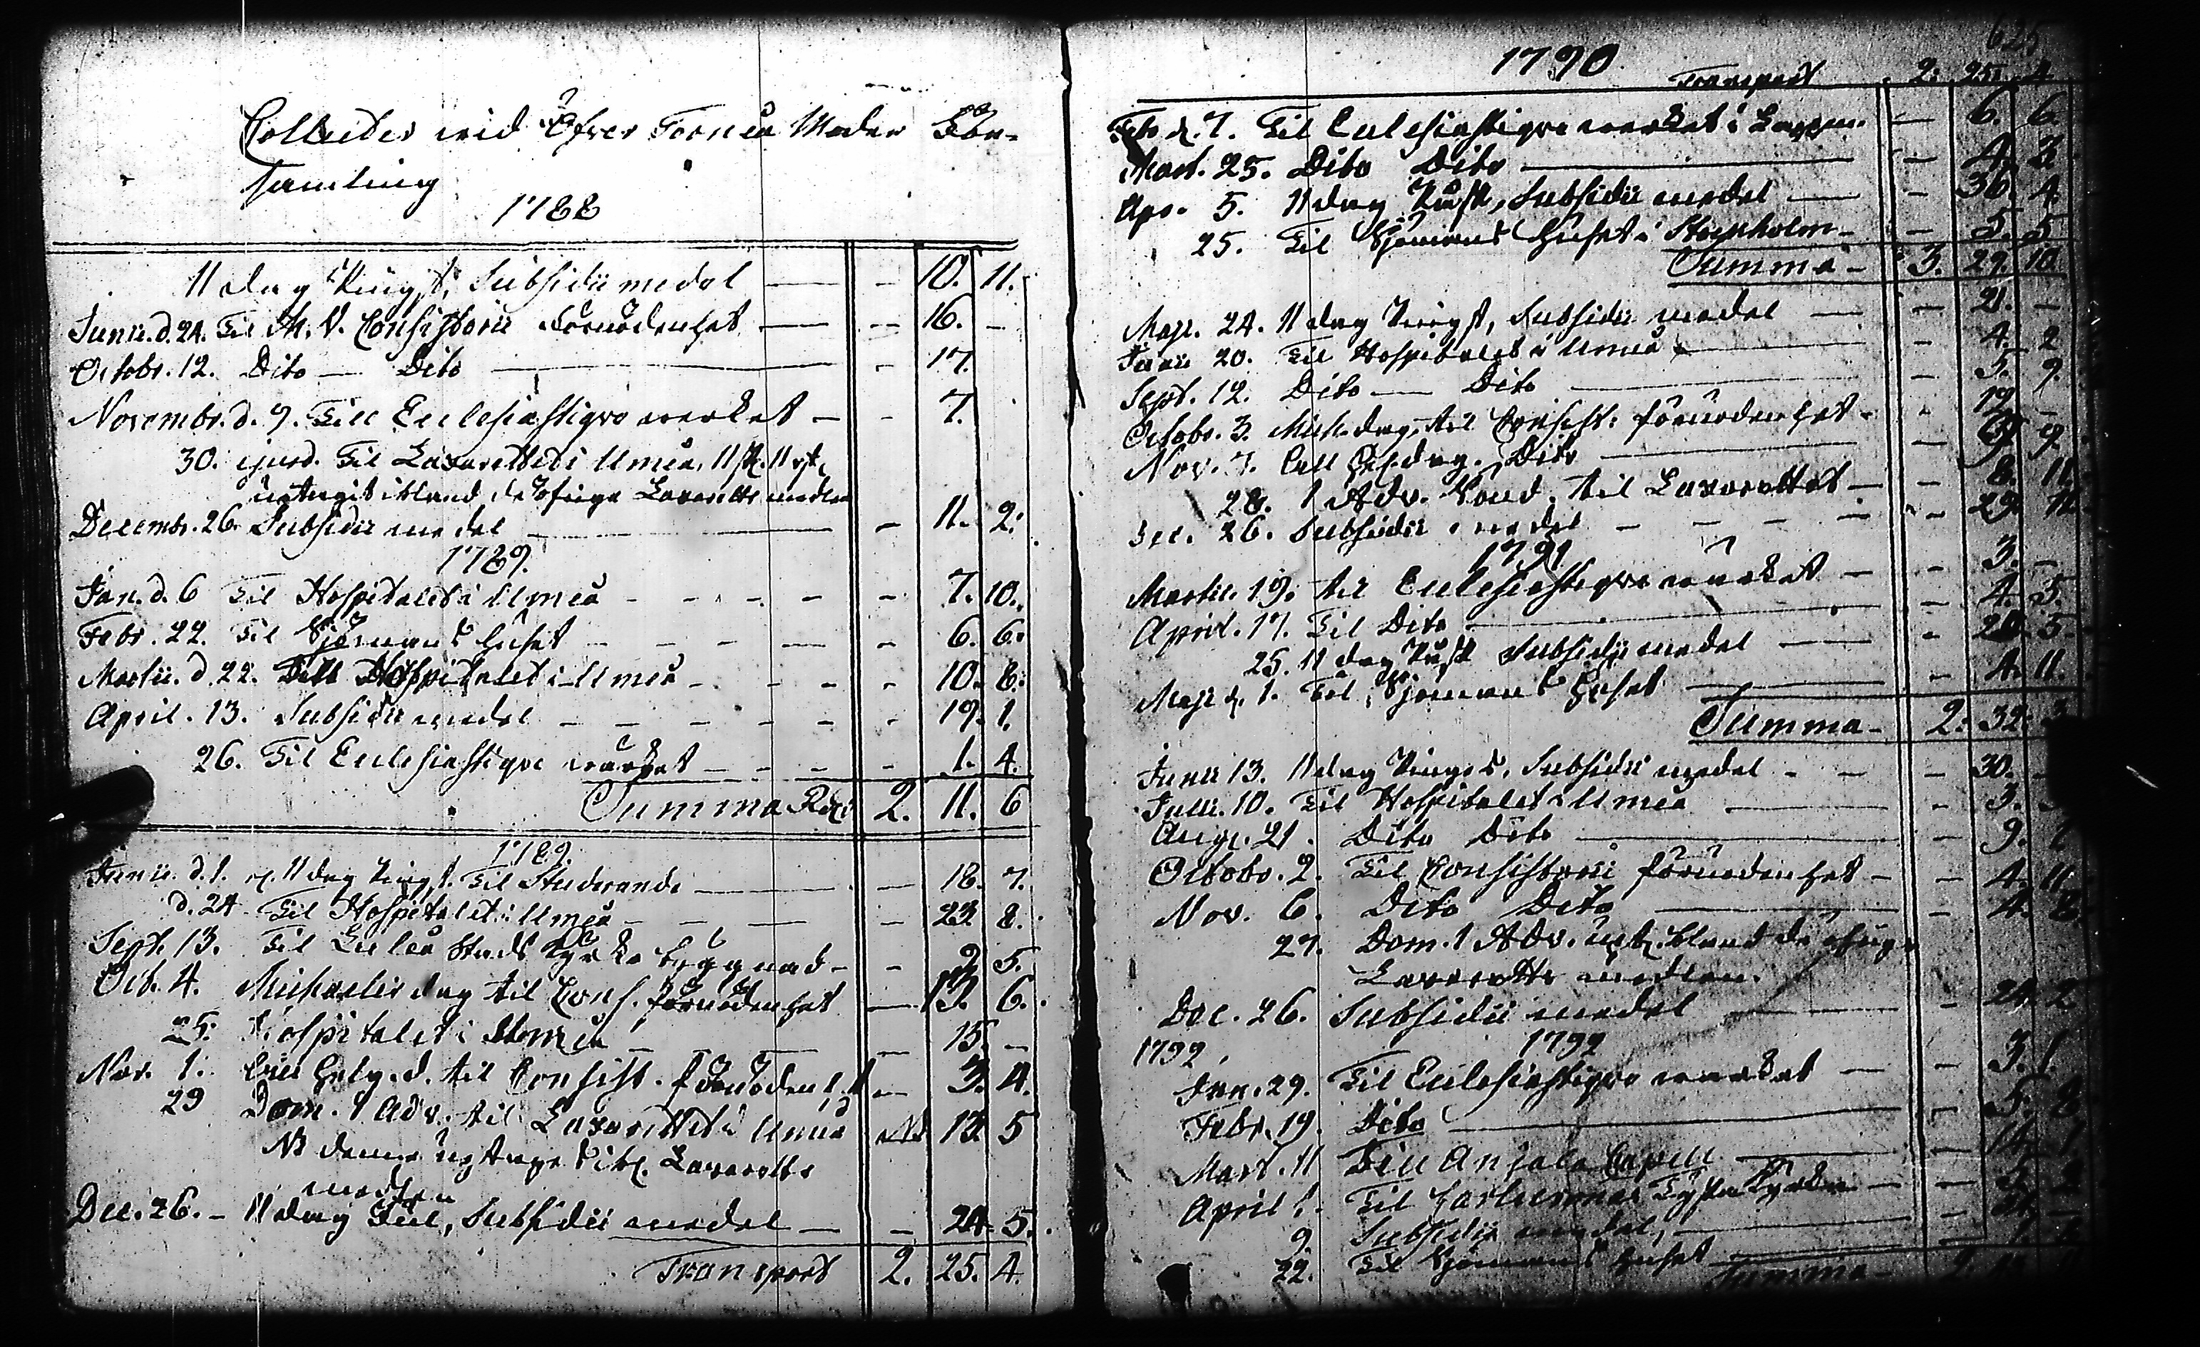 Collecter wid Öfver Torneå Moder För-
samling
1788
II dag Pingst, Subsidii medel — — 10. 11.
Junii. d. 24. Til M. V. Consistorii förnödenhet — — 16. —
Octobr. 12. Dito — Dito — — 17.
Novembr. d. 9. Till Ecclesiastique werket — — 7.
30. ejusd. Til Lazarettet i Umeå, 11 sk. 11 rst.
uptagit ibland de öfriga Lazaretts medlen
Decembr. 26. Subsidii medel — — 11. 2.
1789.
Jan. d. 6 Til Hospitalet i Umeå — — 7. 10.
Febr. 22. Til Sjömans huset — — 6. 6.
Martii. d. 22. Till Hospitalet i Umeå — — 10. 8.
April. 13. Subsidii medel — — 19. 1.
26. Til Ecclesiastique wærket — — 1. 4.
Summa Rdr 2. 11. 6
1789.
Junii. d. 1. II dag Pingst. Til Studerande — — 18. 7.
d. 24 Til Hospitalet i Umeå — — 23 8.
Sept. 13. Til Luleå Stads Kyrko byggnad — — 9 5.
Oct. 4. Michaelis dag til Cons. förnödenhet — 13. 6.
25. Hospitalet i Umeå — — 15. —
Nov. 1. til Consist. förnödenh. — 3. 4.
29 Dom. 1 Adv. til Lazarettet i Umeå 13. 5
NB denne uptages ibl. Lazaretts
medlen
Dec. 26. — II dag Jul, Subsidii medel — — 24. 5.
Transport 2. 25. 4.
625
1790
Transport 2. 25. 4
Febr d. 7. Til Ecclesiastique werket i Lappm. — 6. 6.
Mart. 25. Dito Dito — — 4. 3.
Apr. 5. II dag Påsk, Subsidii medel — — 36. 4.
25. Til Sjömans huset i Stockholm — — 5. 5
Summa — 3. 29. 10.
Maji. 24. II dag Pingst, Subsidii medel — — 21. —
Junii 20. Til Hospitalet i Umeå — — 4. 2
Sept. 12. Dito — Dito — — 5. 9.
Octobr. 3. Mich. dag, til Consist. förnödenhet — 19. —
Nov. 7. Dito — — 9.
28. 1 Adv. Sönd. til Lazarettet — — 8. 11.
Dec. 26. Subsidii medel — — 29. 11.
1791
Martii. 19. til Ecclesiastique wærket — — 3. —
April. 17. Til Dito — — 4. 5.
25. II dag Påsk Subsidii medel — — 5.
Maji d. 1. Til Sjömans huset — — 4. 11.
Summa — 2. 32. 3
Junii 13. II dag Pingst, Subsidii medel — — 30. —
Julii. 10. Til Hospitalet i Umeå — — 3.
Aug. 21. Dito Dito — — 9.
Octobr. 2. Til Consistorii förnödenhet — — 4. 11.
Nov. 6. Dito Dito — — 4. 8.
27. Dom. 1 Adv. upt. bland de öfriga
Lazaretts medlen.
Dec. 26. Subsidii medel — — 24. 2.
1792. 1792
Jan. 29. Til Ecclesiastique wærket — — 3. 1.
Febr. 19. Dito — — 5. 8
Mart. 11 Till Anjala Capell — — 14. 1
April 1. Til Tyska Kyrka — —
9. Subsidii medel, —
22. Til Sjömans huset —
Summa — 2.